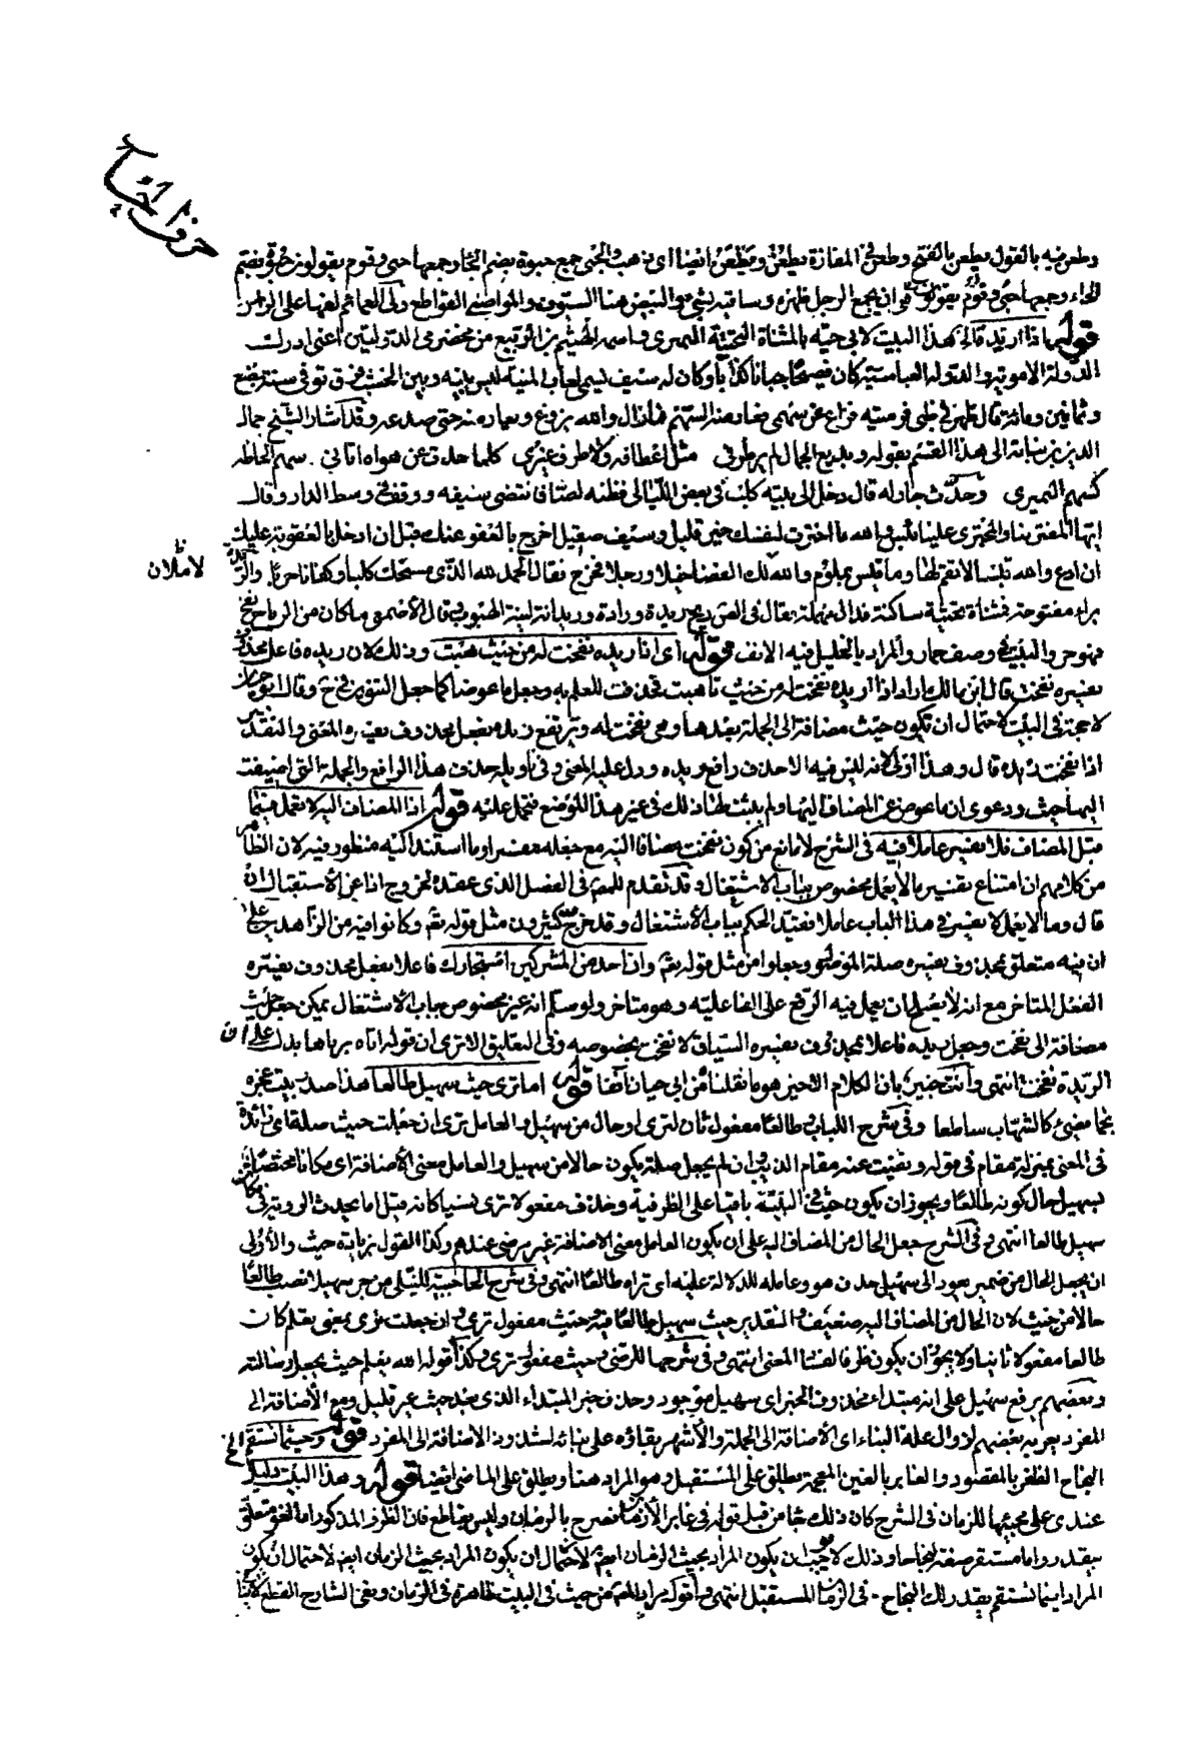 حرف الحاء
وطعن فيه بالقول يطعن بالفتح وطعن في المفازة يطعُن ويطعَن ايضا اى ذهب والحُبى جمع حبوة بضم الحاء وجمعها حبى وقوم يقولون حبوة بفتح
الحاء وجمعها حبى وقوم يقولون هى ان يجمع الرجل ظهره وساقيه بشئ والبيض هنا السيوف والمواضى القواطع ولى العمائم لفها على الراس
قوله اذا اريد قال هذا البيت لابى حيّة بالمثناة التحتية النميرى واسمه الهيثم بن الربيع من مخضرمى الدولتين اعنى ادركت
الدولة الاموية والدولة العباسية كان فصيحا جبانا كذابا وكان له سيف يسميه لعاب المنية ليس بينه وبين الخشب فرق توفى سنة بضع
وثمانين ومائة قال ظهر لى ظبى فرميته فزاغ عن سهمى فعارضه السهم فما زال والله يزوغ ويعارضه حتى صدعه وقد اشار الشيخ جمال
الدين بن نباتة الى هذا القسم بقوله وبديع الجمال لم ير طرفى مثل اعطافه ولا طرف غيرى كلما حدت عن هواه اتانى سهم الحاظه
كسهم النميرى وحدّث جار له قال دخل الى بيته كلب فى بعض الليالى فظنه لصا فانتضى سيفه ووقف فى وسط الدار وقال
ايها المغتر بنا والمجترى علينا بئس والله ما اخترت لنفسك خير قليل وسيف صقيل اخرج بالعفو عنك قبل ان ادخل بالعقوبة عليك
لاملان
ان ادع والله قيسا لا تقم لها وما قيس
والله لك الفضا خيلا ورجلا فخرج فقال الحمد لله الذى مسخك كلبا وكفانا حربا
براء مفتوحة فمثناة تحتية ساكنة فدال مهملة يقال
ريح ريدة ورادة وريدانة لينة الهبوب قال الاصمعى ما كان من الرياح نفخ
والبيت فى وصف حمار والمراد بالخليل فيه الانف قوله اى اذا ريده نفحت له من حيث هبت وذلك لان ريده فاعل محذوف
يفسره نفحت قال ابن مالك اراد اذا اريده نفحت له من حيث ما هبت فحذفت للعلم به وجعل ما عوضا كما جعل التنوين فى ح وقال ابو حيان
لا حجة فى البيت لاحتمال ان تكون حيث مضافة الى الجملة بعدها وهى نفحت له ويرتفع ريده بفعل محذوف يفسره المعنى والتقدير
اذا نفحت ريده قال وهذا اولى لانه ليس فيه الا حذف رافع ريده ودل عليه المعنى وفى تاويله حذف هذا الرافع والجملة التى اضيفت
اليها حيث ودعوى ان ما عوض عن المضاف اليها ولم يثبت لها ذلك فى غير هذا الموضع فتحمل عليه قوله اذا المضاف اليه لا يعمل فيما
قبل المضاف فلا يفسر عاملا فيه فى الشرح لا مانع من كون نفحت مضافا اليه مع جعله مفسرا وما استند اليه منظور فيه لان الظاهر
من كلامهم ان امتناع تفسير ما لا يعمل مخصوص بباب الاشتغال وقد تقدم للمص فى الفصل الذى عقده لخروج اذا عن الاستقبال ان
قال وما لا يعمل لا يفسر فى هذا الباب عاملا فقيد الحكم بباب الاشتغال وقد خرج كثيرون مثل قوله تعالى وكانوا فيه من الزاهدين على
ان فيه متعلق بمحذوف يفسره صلة الموصول وجعلوا من مثل قوله تعالى وان احد من المشركين استجارك فاعلا بفعل محذوف يفسره
الفعل المتاخر مع انه لا يصلح لان يعمل فيه الرفع على الفاعلية وهو متاخر ولو سلم انه غير مخصوص بباب الاشتغال يمكن جعل حيث
مضافة الى نفحت وجعل ريده فاعلا بمحذوف يفسره السياق لا نفحت بخصوصه وفى التعليق الا ترى ان قوله اتاه برياها يدلك على ان
الريدة نفحت انتهى وانت خبير بان الكلام الاخير هو ما نقلناه عن ابى حيان آنفا قوله اما ترى حيث سهيل طالعا هذا صدر بيت عجزه
نجما مضئ كالشهاب ساطعا وفى شرح اللباب طالعا مفعول ثان لترى او حال من سهيل والعامل ترى ان جعلت حيث صلة اى زائدة
فى المعنى بمنزلة مقام فى قوله ونفيت عنه مقام الذيب وان لم يجعل صلة يكون حالا من سهيل والعامل معنى الاضافة اى مكانا مختصا
لسهيل حال كونه طالعا ويجوز ان يكون حيث فى البيت باقيا على الظرفية وحذف مفعولا ترى نسيا كانه قيل اما يحدث الروية فى
سهيل طالعا انتهى وفى الشرح جعل الحال من المضاف اليه على ان يكون العامل معنى الاضافة غير مرضى عندهم وكذا القول بزيادة حيث والاولى
ان يجعل الحال من ضمير يعود الى سهيل حذف هو وعامله للدلالة عليه اى تراه طالعا انتهى وفى شرح الحاجبية للنيلى من جر سهيلا نصب طالعا
حالا من حيث لان الحال من المضاف اليه ضعيف والتقدير حيث سهيل طالعا فيه وحيث مفعول ترى وان جعلت ترى بمعنى تعلم كان
طالعا مفعولا ثانيا ولا يجوز ان يكون ظرفا لفساد المعنى انتهى وفى شرحها للرضى وحيث مفعول ترى وكذا قوله الله يعلم حيث يجعل رسالته
وبعضهم يرفع سهيل على انه مبتداء محذوف الخبر اى سهيل موجود وحذف خبر المبتداء الذى بعد حيث غير قليل ومع الاضافة الى
المفرد يعربه بعضهم لزوال علة البناء اى الاضافة الى الجملة والاشهر بقاؤه على بنائه لشذوذ الاضافة الى المفرد قوله وحيثما تستقم الخ
النجاح الظفر بالمقصود والغابر بالغين المعجمة يطلق على المستقبل وهو المراد هنا ويطلق على الماضى ايضا قوله وهذا البيت دليل
عندى على مجيئها للزمان فى الشرح كان ذلك جا من قبل قوله فى غابر الازمان فصرح بالزمان وليس بقاطع فان الظرف المذكور اما لغو متعلق
بيقدر واما مستقر صفة لنجاحا وذلك لا يوجب ان يكون المراد بحيث الزمان ايضا لاحتمال ان يكون المراد بحيث الزمان ايضا لاحتمال ان يكون
المراد اينما تستقم يقدر لك النجاح فى الزمان المستقبل انتهى واقول مراد المص ان حيث فى البيت ظاهرة فى الزمان ونفى الشارح القطع